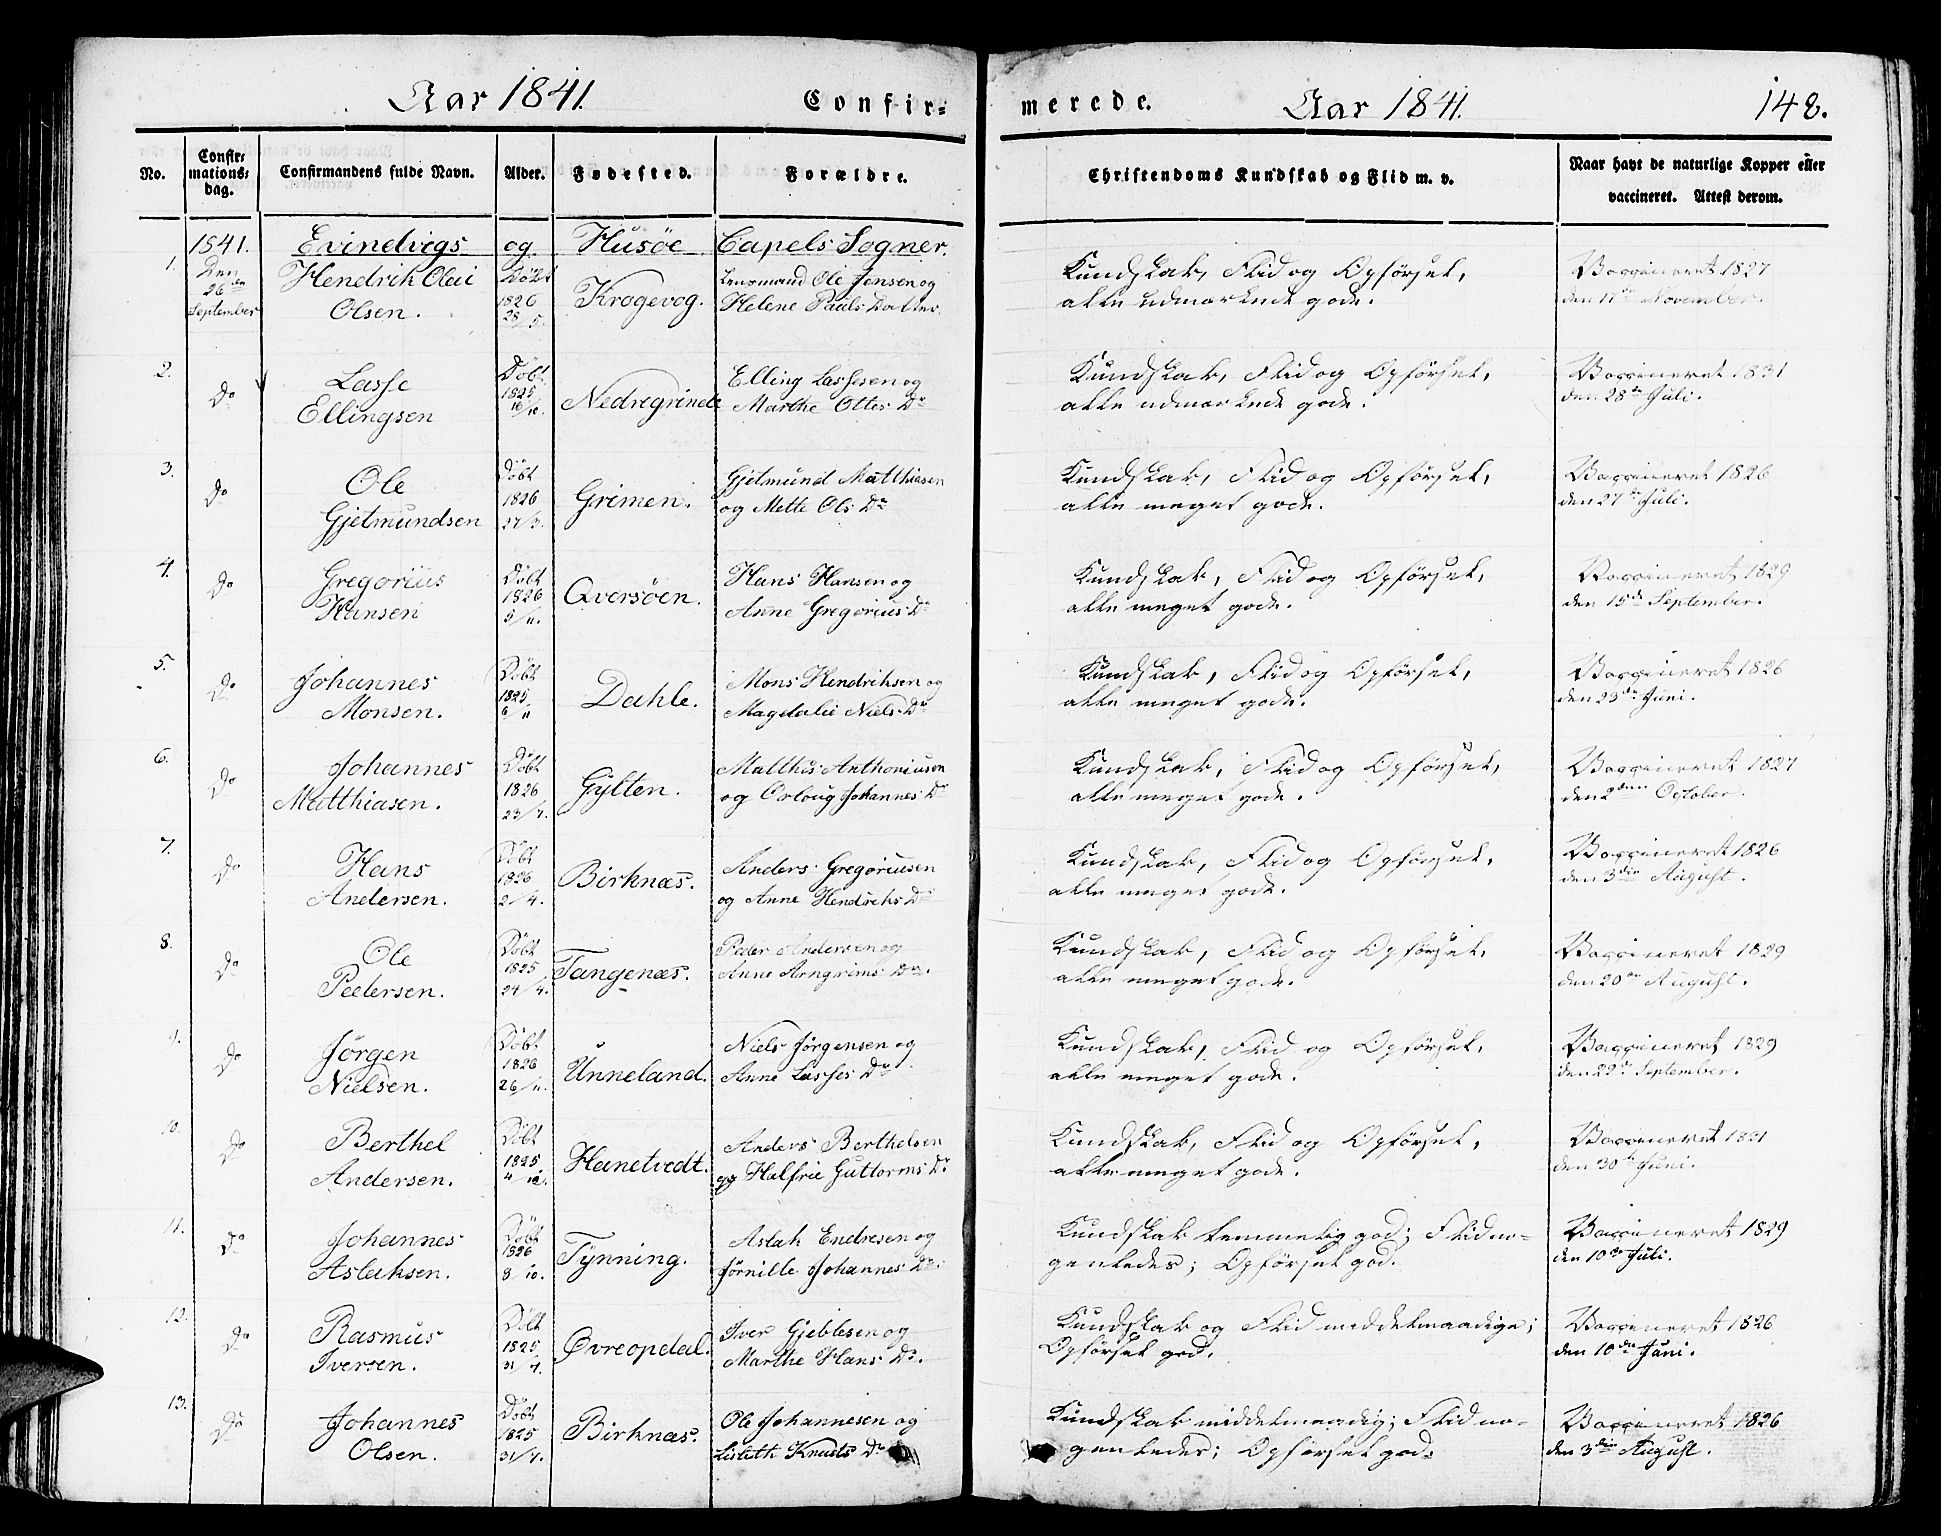 Aar 1841. Confir=
merede. Aar 1841. 148.
No. Confir= mations= dag. Confirmandens fulde Navn. Alder. Fødested. Forældre. Christendoms Kundskab og Flid m. v. Naar havt de naturlige Kopper eller vaccineret. Attest derom.
1841. Evindvigs og Husöe Capels Sogner.
1. Den 26de September Hendrik Olai Döbt Lensmand Ole Jensen og Kundskab, Flid og Opförsel, Vaccineret 1827
Olsen. 1826 28/5. Krogevog. Helene Pauls Datter. alle udmærkede gode. den 11te November.
2. Do Lasse Döbt Elling Lassesen og Kundskab, Flid og Opförsel, Vaccineret 1831
Ellingsen 1825 16/10. Nedregrinde Marthe Ottes Dr alle udmærkede gode. den 28de Juli.
3. Do Ole Döbt Gjetmund Matthiasen Kundskab, Flid og Opförsel, Vaccineret 1826
Gjetmundsen 1826 27/3. Grimen. og Mette Ols Dr alle meget gode. den 27de Juli.
4. Do Gregorius Döbt Hans Hansen og Kundskab, Flid og Opförsel, Vaccineret 1829
Hansen 1826 5/11. Qversöen. Anne Gregorius Dr alle meget gode. den 15de September.
5. Do Johannes Döbt Mons Hendriksen og Kundskab, Flid og Opförsel, Vaccineret 1826
Monsen. 1825 6/11 Dahle. Magdalie Niels Dr alle meget gode. den 23de Juni.
6. Do Johannes Döbt Matthis Anthoniusen Kundskab, Flid og Opförsel, Vaccineret 1827
Matthiasen. 1826 23/7. Gylten. og Orloug Johannes Dr alle meget gode. den 2den October.
7. Do Hans Döbt Anders Gregoriusen Kundskab, Flid og Opförsel, Vaccineret 1826
Andersen. 1826 2/4. Birknæs. og Anne Hendriks Dr alle meget gode. den 3die August.
8. Do Ole Döbt Peder Andersen og Kundskab, Flid og Opförsel, Vaccineret 1829
Pedersen. 1825 24/4. Tangenæs. Anne Arngrims Dr. alle meget gode. den 20de August.
9. Do Jörgen Döbt Niels Jörgensen og Kundskab, Flid og Opförsel, Vaccineret 1829
Nielsen. 1826 26/11. Unneland. Anne Lasses Dr alle meget gode. den 29de September.
10. Do Berthel Döbt Anders Berthelsen Kundskab, Flid og Opförsel, Vaccineret 1831
Andersen. 1825 4/12. Hanetvedt. og Halfrie Guttorms Dr alle meget gode. den 30te Juni.
11. Do Johannes Döbt Aslak Endresen og Kundskab temmelig god; Flid no- Vaccineret 1829
Aslaksen. 1826 8/10. Tynning. Jörnille Johannes Dr. genledes; Opförsel god. den 10de Juli.
12. Do Rasmus Döbt Iver Gjeblesen og Kundskab og Flid middelmaadige; Vaccineret 1826
Iversen. 1825 31/7. Øvreopdal. Marthe Hans Dr. Opförsel god. den 10de Juni.
13. Do Johannes Döbt Ole Johannesen og Kundskab middelmaadig; Flid no- Vaccineret 1826
Olsen. 1825 31/7. Birknæs. Lisbeth Knuds Dr genledes; Opförsel god. den 3die August.